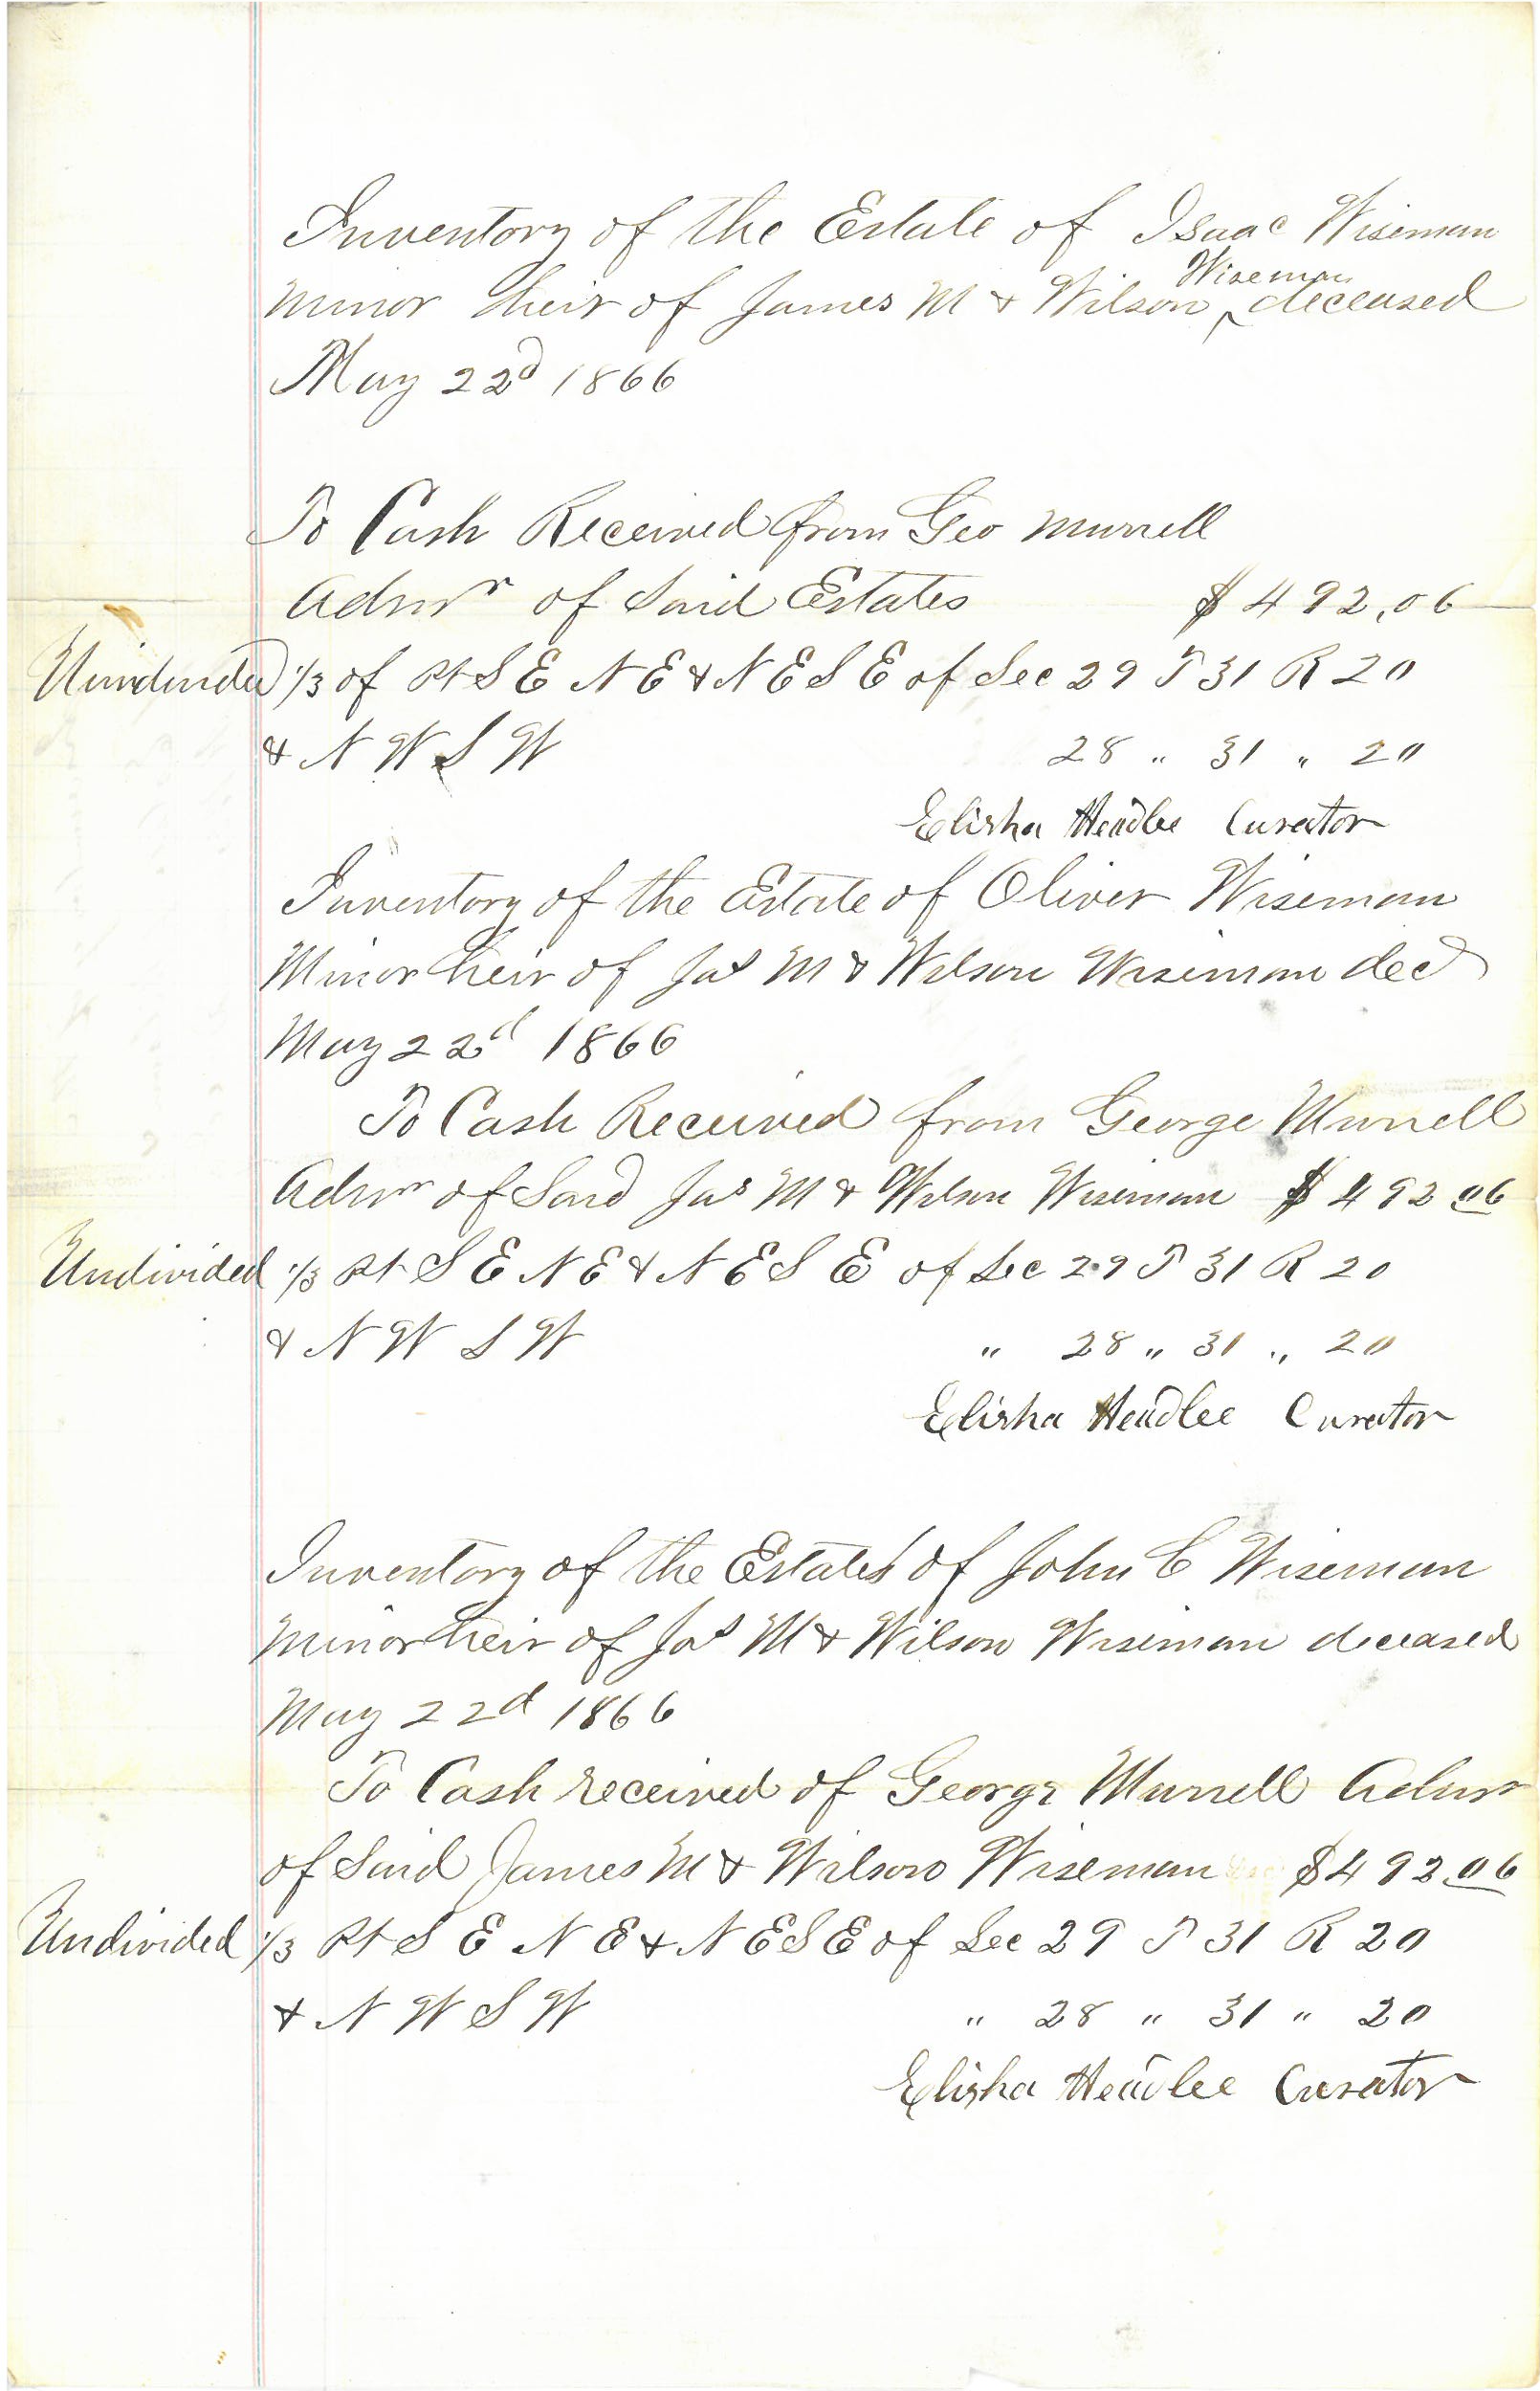 Inventory of the Estate of Isaac Wiseman
Minor heir of James M & Wilson Wiseman deceased
May 22d 1866
To Cash Received from Geo Murrell
Admr of Said Estates $492.06
Undivided 1/3 of Pt S E N E & N E S E of Sec 29 T 31 R 20
& N W S W 28 " 31 " 20
Elisha Headlee Curator
Inventory of the Estate of Oliver Wiseman
Minor heir of Jas M & Wilson Wiseman decd
May 22d 1866
To Cash Received from George Murrell
Admr of Said Jas M & Wilson Wiseman $492 06
Undivided 1/3 Pt S E N E & N E S E of Sec 29 T 31 R 20
& N W S W " 28 " 31 " 20
Elisha Headlee Curator
Inventory of the Estates of John C Wiseman
Minor heir of Jas M & Wilson Wiseman deceased
May 22d 1866
To Cash received of George Murrell Admr
of Said James M & Wilson Wiseman $492.06
Undivided 1/3 Pt S E N E & N E S E of Sec 29 T 31 R 20
& N W S W " 28 " 31 " 20
Elisha Headlee Curator